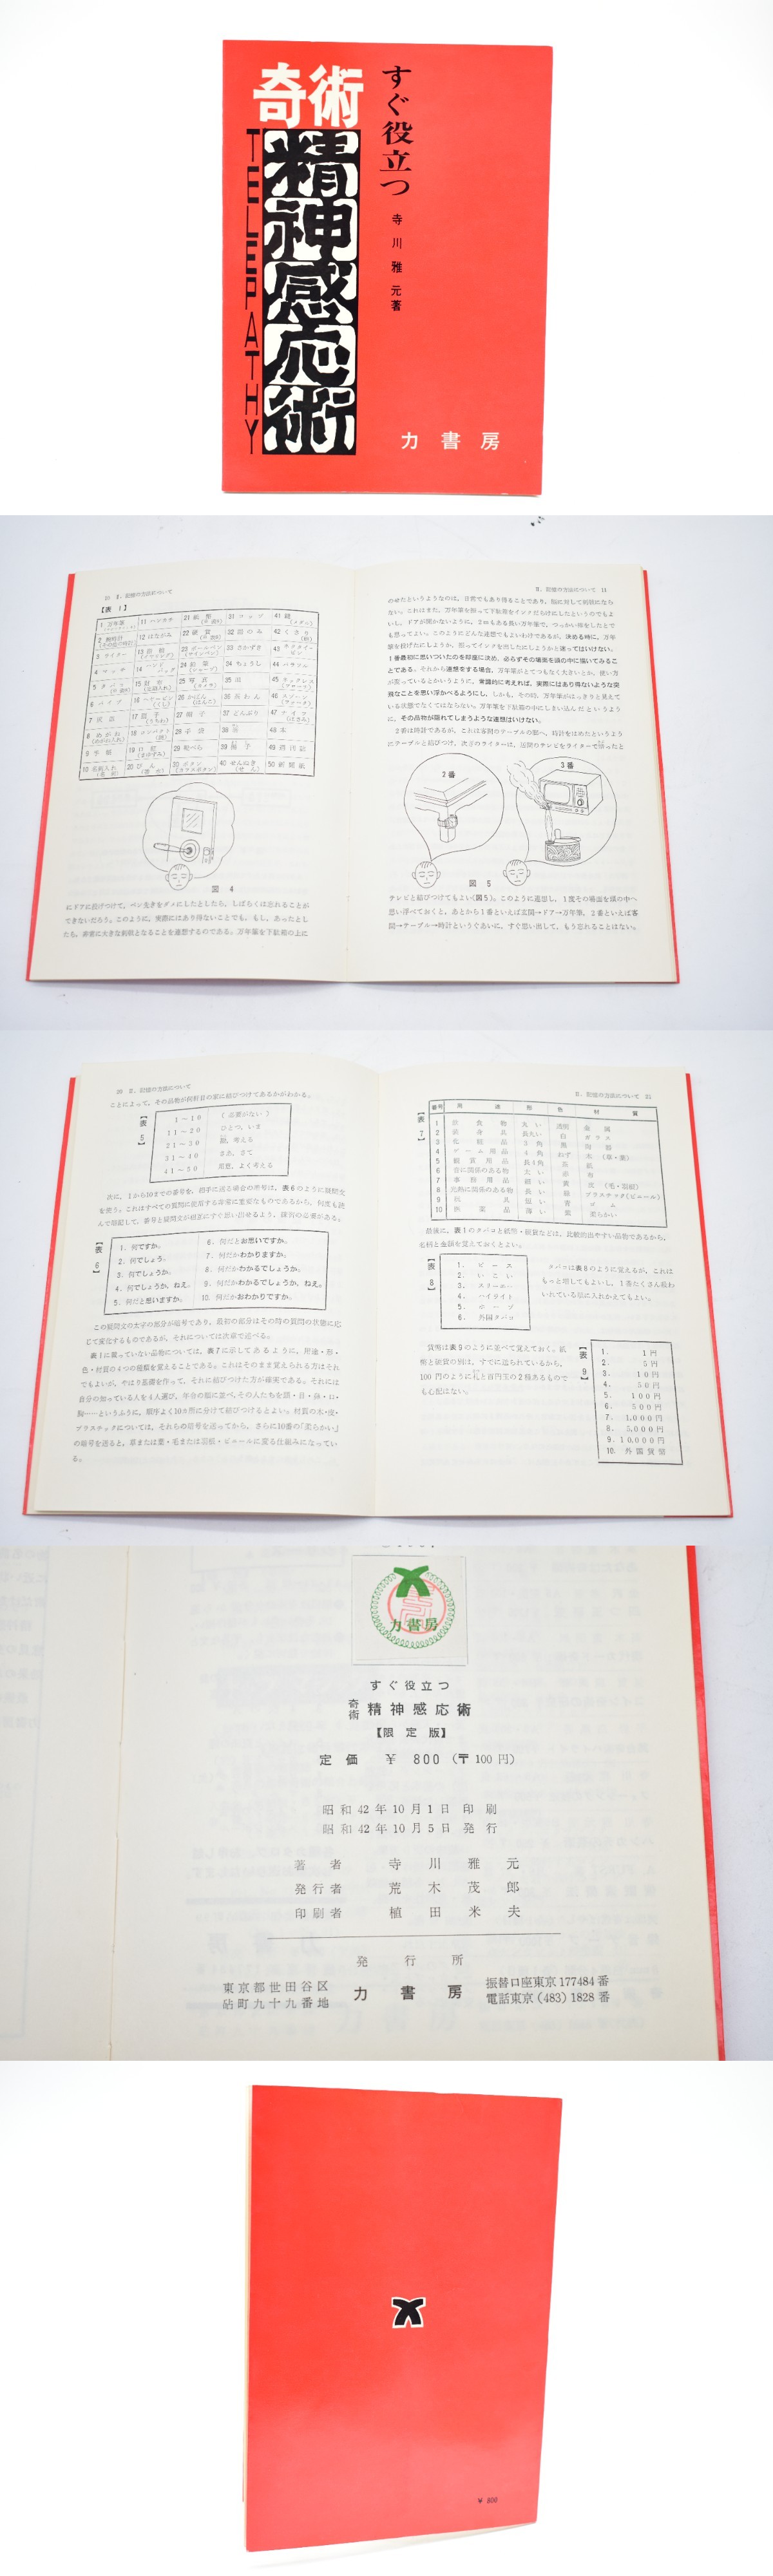 すぐ役立つ
寺川雅元著
奇術
精神感応術
TELEPATHY
力書房
10 Ⅱ. 記憶の方法について
【表 1】
1 万年筆
11 ハンカチ
21 紙幣
31 コップ
41 鍵
2 腕時計
12 はながみ
22 硬貨
32 湯のみ
42 くさり
3 ライター
13 指輪
23 ボールペン
33 さかずき
43 ネクタイピン
4 マッチ
14 ハンドバッグ
24 鉛筆
34 ちょうし
5 タバコ
15 財布
25 写真
35 皿
45 ネックレス
6 パイプ
26 かばん
36 茶わん
46 スプーン
7 灰皿
17 扇子
27 帽子
37 どんぶり
47 ナイフ
8 めがね
18 コンパクト
28 手袋
48 本
9 手帳
19 口紅
29 靴べら
49 週刊誌
10 名刺入れ
20 びん
30 ボタン
40 せんぬき
50 新聞紙
図 4
にドアに投げつけて、ペン先きをダメにしたとしたら、しばらくは忘れることが
できないだろう。このように、実際にはあり得ないことでも、もし、あったとし
たら、非常に大きな刺戟となることを連想するのである。万年筆を下駄箱の上に
Ⅱ. 記憶の方法について 11
のせたというようなのは、日常でもあり得ることであり、脳に対して刺戟になら
ない。これはまた、万年筆を振って下駄箱をインクだらけにしたというのでもよ
いし、ドアが開かないように、2mもある長い万年筆で、つっかい棒をしたとで
も思ってよい。このようにどんな連想でもよいわけであるが、決める時に、万年
筆を投げたにしようか、振ってインクを出したにしようかと迷ってはいけない。
1番最初に思いついたのを即座に決め、必らずその場面を頭の中に描いてみるこ
とである。それから連想をする場合、万年筆がとてつもなく大きいとか、使い方
が変っているとかいうように、常識的に考えれば、実際にはあり得ないような突
飛なことを思い浮かべるようにし、しかも、その時、万年筆がはっきりと見えて
いる状態でなくてはならない。万年筆を下駄箱の中にしまい込んだというよう
に、その品物が隠れてしまうような連想はいけない。
2番は時計であるが、これは客間のテーブルの脚へ、時計をはめたというよう
にテーブルと結びつけ、次ぎのライターは、居間のテレビをライターで焼ったと
2番
3番
図 5
テレビと結びつけてもよい(図5)。このように連想し、1度その場面を頭の中へ
思い浮べておくと、あとから1番といえば玄関→ドア→万年筆、2番といえば客
間→テーブル→時計というぐあいに、すぐ思い出して、もう忘れることはない。
20 Ⅱ. 記憶の方法について
ことによって、その品物が何桁目の家に結びつけてあるかがわかる。
【表 5】
1～10 (必要がない)
11～20 ひとつ、いま
21～30 間、考える
31～40 さあ、さて
41～50 用意、よく考える
次に、1から10までの番号を、相手に送る場合の暗号は、表6のように疑問文
を使う。これはすべての質問に使用する非常に重要なものであるから、何度も読
んで暗記して、番号と疑問文が相互にすぐ思い出せるよう、練習の必要がある。
【表 6】
1. 何ですか。
2. 何でしょう。
3. 何でしょうか。
4. 何でしょうか、ねえ。
5. 何だと思いますか。
6. 何だとお思いですか。
7. 何だかわかりますか。
8. 何だかわかるでしょうか。
9. 何だかわかるでしょうか、ねえ。
10. 何だかおわかりですか。
この疑問文の太字の部分が暗号であり、最初の部分はその時の質問の状態に応
じて変化するものであるが、それについては次章で述べる。
表1に載っていない品物については、表7に示してあるように、用途・形・
色・材質の4つの種類を覚えることである。これはそのまま覚えられる方はそれ
でもよいが、やはり基礎を作って、それに結びつけた方が確実である。それには
自分の知っている人を4人選び、年令の順に並べ、その人たちを頭・目・鼻・口・
胸……というふうに、順序よく10ヵ所に分けて結びつけるとよい。材質の木・皮・
プラスチックについては、それらの暗号を送ってから、さらに10番の「柔らかい」
の暗号を送ると、草または藁・毛または羽根・ビニールに変る仕組みになってい
る。
Ⅱ. 記憶の方法について 21
【表 7】
番号 用途 形 色 材質
1 飲食物 丸い 透明 金属
2 装身具 長丸い 白 ガラス
3 化粧品 3角 黒 陶器
4 ゲーム用品 4角 ねず 木 (草・藁)
5 観賞用品 長4角 茶 紙
6 音に関係のある物 太い 赤 布
7 事務用品 細い 黄 皮 (毛・羽根)
8 光熱に関係のある物 長い 緑 プラスチック(ビニール)
9 玩具 短い 青 ゴム
10 医薬品 薄い 紫 柔らかい
最後に、表1のタバコと紙幣・硬貨などは、比較的出やすい品物であるから、
名柄と金額を覚えておくとよい。
【表 8】
1. ピース
2. いこい
3. スリーエー
4. ハイライト
5. ホープ
6. 外国タバコ
タバコは表8のように覚えるが、これは
もっと増してもよいし、1番たくさん吸わ
いれている順に入れかえてもよい。
貨幣は表9のように並べて覚えておく。紙
幣と硬貨の別は、すでに送られているから、
100円のように札と百円玉の2種あるもので
も心配はない。
【表 9】
1. 1円
2. 5円
3. 10円
4. 50円
5. 100円
6. 500円
7. 1,000円
8. 5,000円
9. 10,000円
10. 外国貨幣
力書房
すぐ役立つ
奇術 精神感応術
【限定版】
定価 ¥ 800 (〒100円)
昭和42年10月1日 印刷
昭和42年10月5日 発行
著者 寺川雅元
発行者 荒木茂郎
印刷者 植田米夫
発行所
東京都世田谷区
砧町九十九番地
力書房
振替口座東京177484番
電話東京(483)1828番
¥ 800